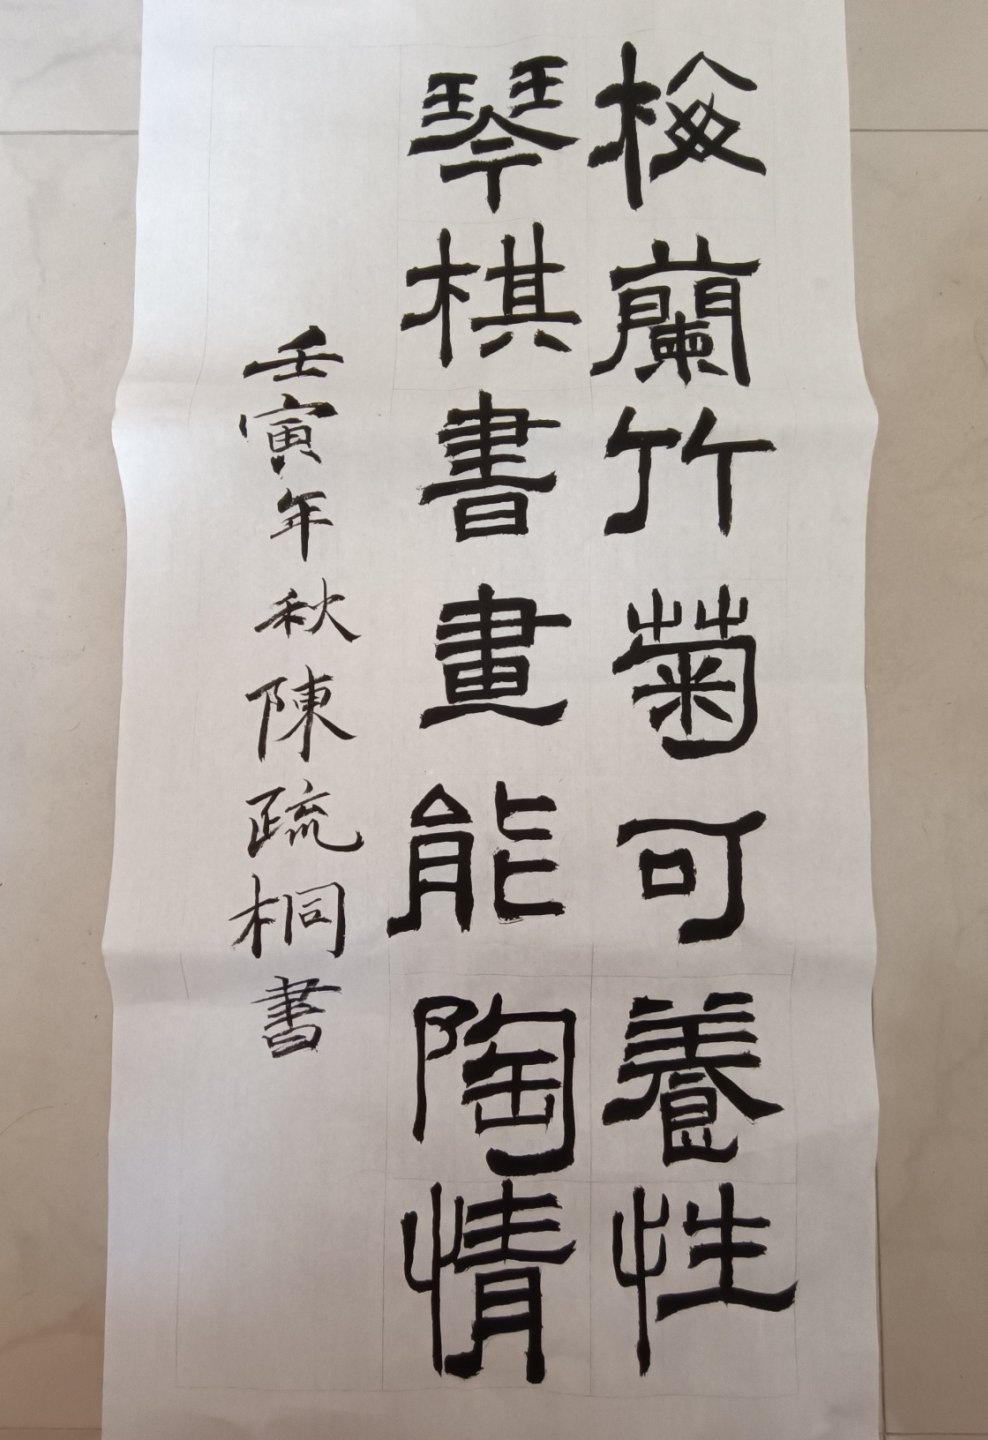 梅蘭竹菊可養性
琴棋書畫能陶情
壬寅年秋陳疏桐書